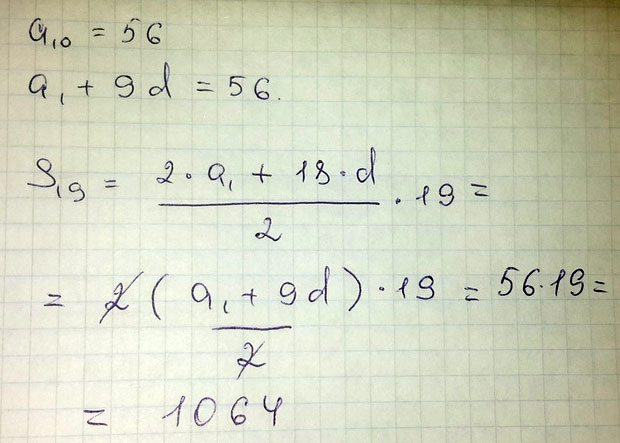 a₁₀ = 56
a₁ + 9d = 56.
S₁₉ = (2·a₁ + 18·d)/2 · 19 =
= 2(a₁ + 9d)/2 · 19 = 56·19 =
= 1064